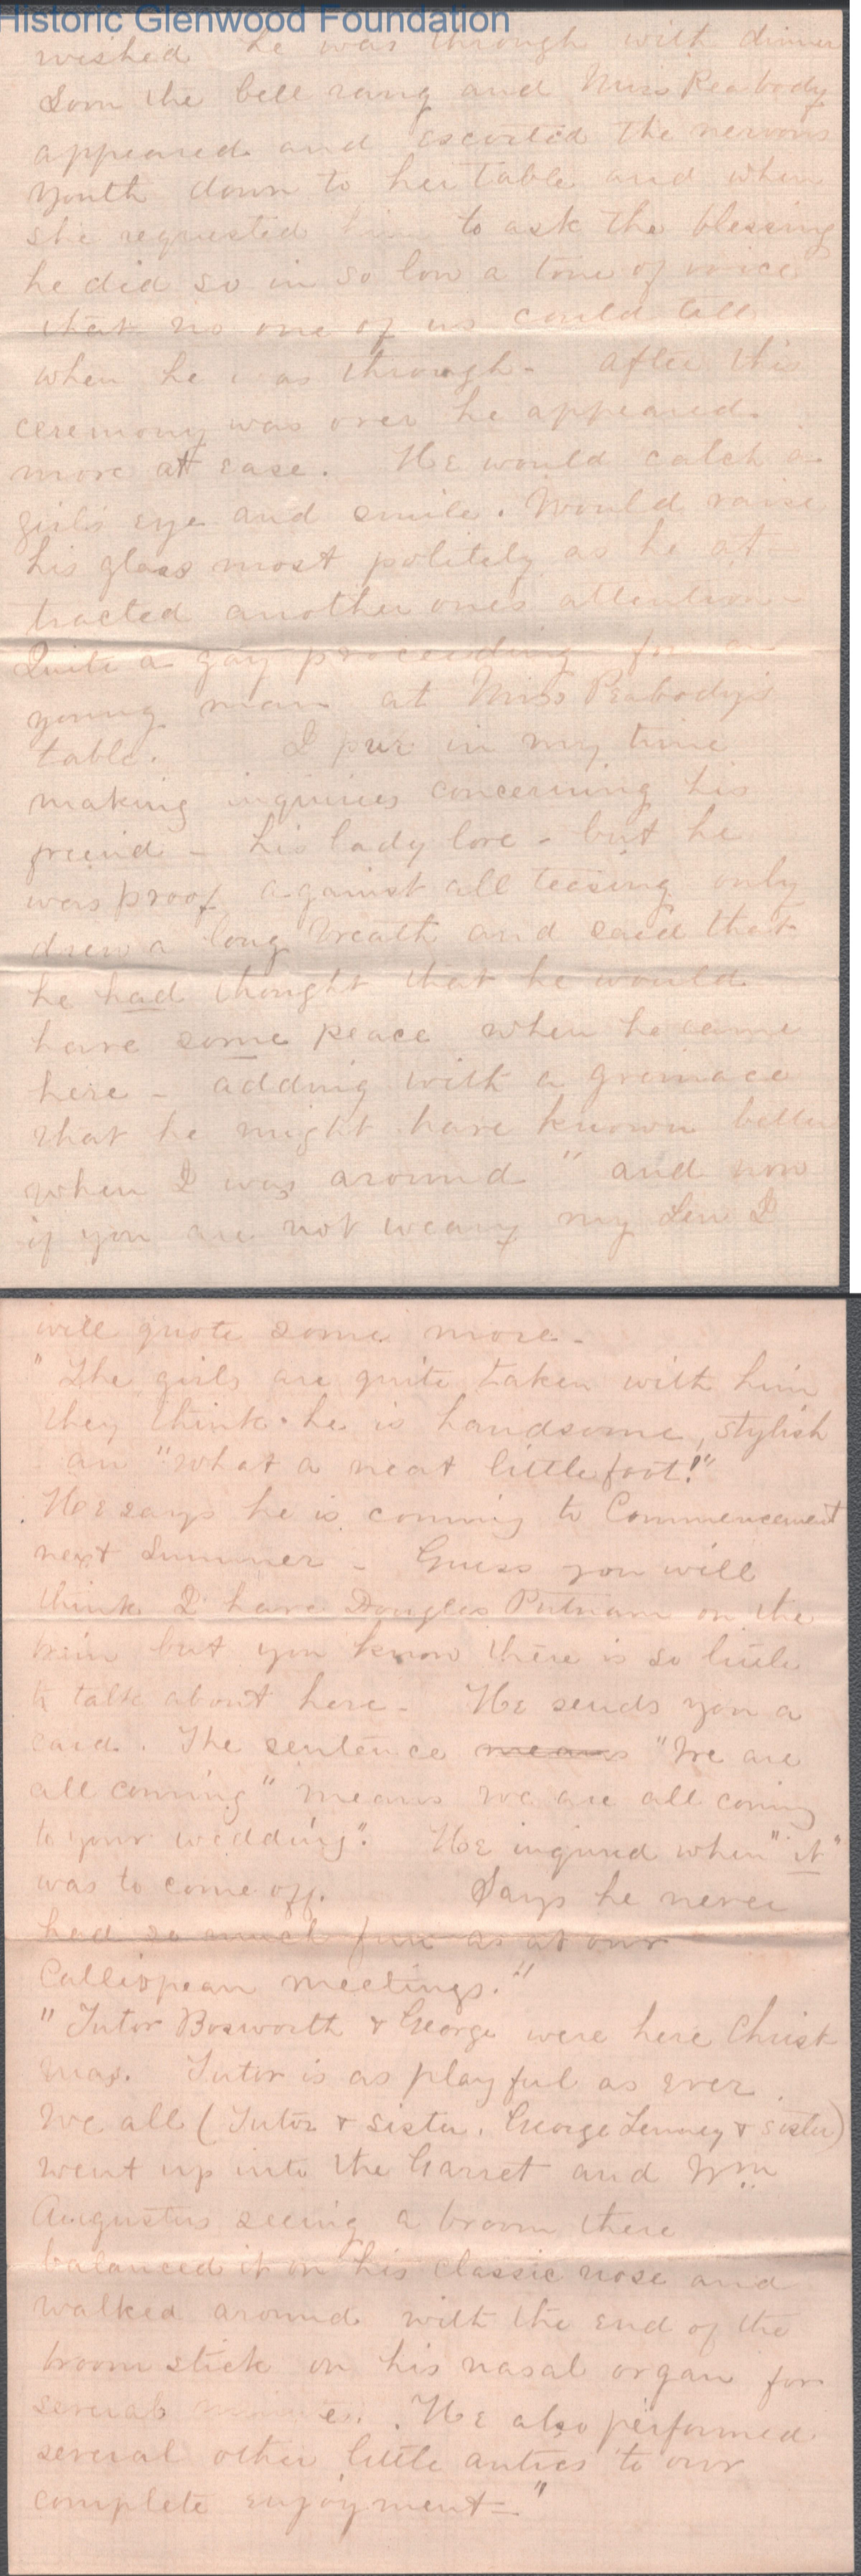 Historic Glenwood Foundation
wished he was through with dinner
Soon the bell rang and Miss Peabody
appeared and escorted the nervous
youth down to her table and when
she requested him to ask the blessing
he did so in so low a tone of voice
that no one of us could tell
when he was through - After this
ceremony was over he appeared
more at ease. He would catch a
girl's eye and smile. Would raise
his glass most politely as he at-
tracted another one's attention -
Quite a gay proceeding for a
young man at Miss Peabody's
table. I put in my time
making inquiries concerning his
freind - his lady love - but he
was proof against all teasing only
drew a long breath and said that
he had thought that he would
have some peace when he came
here - adding with a grimace
that he might have known better
when I was around " and now
if you are not weary my I
will quote some more -
"The girls are quite taken with him
they think he is handsome, stylish
an "what a neat little foot!"
He says he is coming to Commencement
next Summer - Guess you will
think I have Douglas Putnam on the
brain but you know there is so little
to talk about here - He sends you a
card. The sentence means "We are
all coming" means we are all coming
to your wedding". He inquired when "it"
was to come off. Says he never
had so much fun as at our
Calliopean meetings."
"Tutor Bosworth & George were here Christ
mas. Tutor is as playful as ever.
We all (Tutor & sister, George Tenney & sister)
went up into the Garret and Wm
Augustus seeing a broom there
balanced it on his classic nose and
walked around with the end of the
broom stick on his nasal organ for
several . He also performed
several other little antics to our
complete enjoyment -"